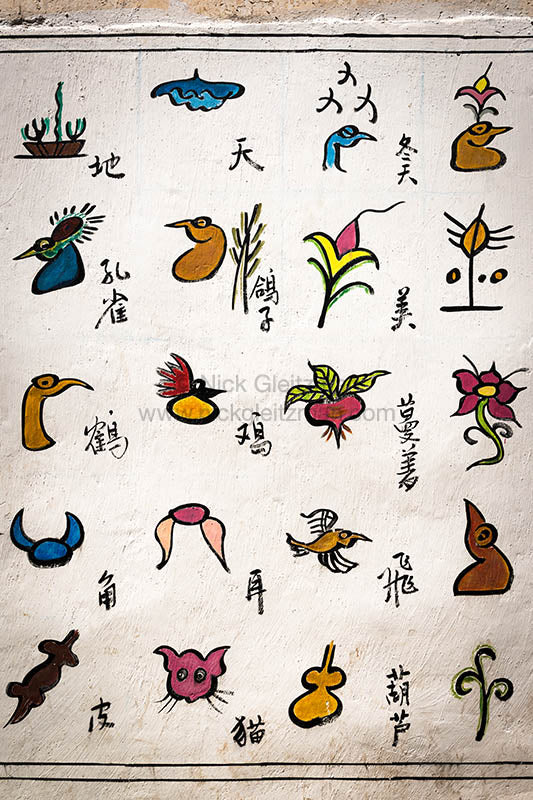 地
天
冬天
孔雀
鸽子
美
© Nick Gleitzman
www.nickgleitzman.com
鹤
鸡
蔓菁
角
耳
飛
皮
猫
葫芦